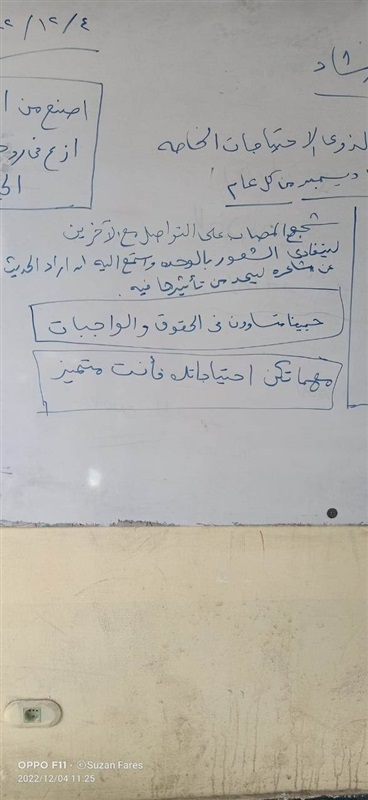 ٤/١٢/
اصنع من ا
ازرع في رو
الح
لذوى الاحتياجات الخاصه
ديسمبر من كل عام
شجع المصاب على التواصل مع الآخرين
ليتفادى الشعور بالوحده واستمع اليه ان اراد الحديث
عن مشاعره ليحد من تأثيرها فيه.
جميعنا متساوون فى الحقوق والواجبات
مهما تكن احتياجاتك فأنت متميز
OPPO F11 Suzan Fares
2022/12/04 11:25